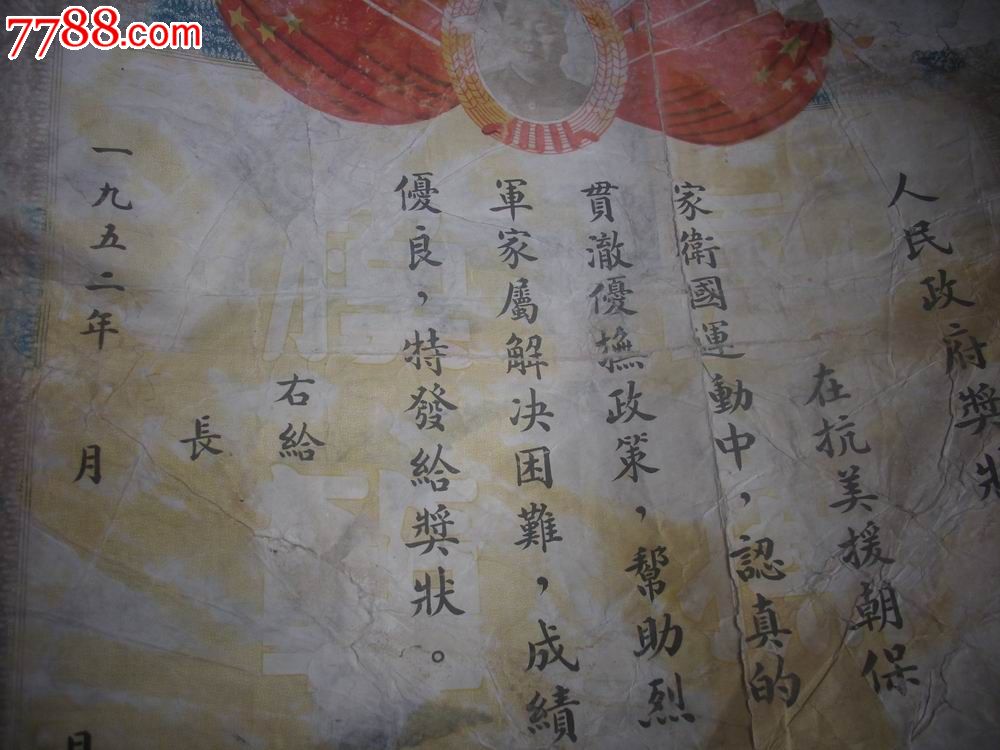 7788.com
人民政府獎狀
在抗美援朝保
家衛國運動中，認真的
貫澈優撫政策，幫助烈
軍家屬解决困難，成績
優良，特發給獎狀。
右給
長
一九五二年 月